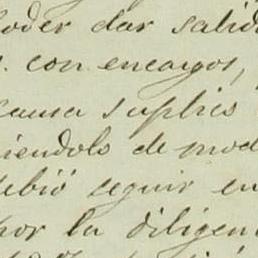 poder dar salid
s. con encargos,
causa suplico
iendolo de mod
debió seguir en
por la diligen